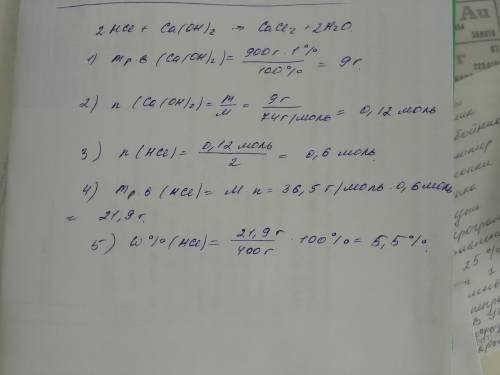 2 HCl + Ca(OH)₂ → CaCl₂ + 2H₂O.
1) mр.в (Ca(OH)₂) = 900г · 1% / 100% = 9г.
2) n (Ca(OH)₂) = m / M = 9г / 74г/моль = 0,12 моль
3) n (HCl) = 0,12 моль / 2 = 0,6 моль
4) mр.в (HCl) = M · n = 36,5 г/моль · 0,6 моль
= 21,9 г.
5) W% (HCl) = 21,9 г / 400 г · 100% = 5,5 %.
Au
25 %